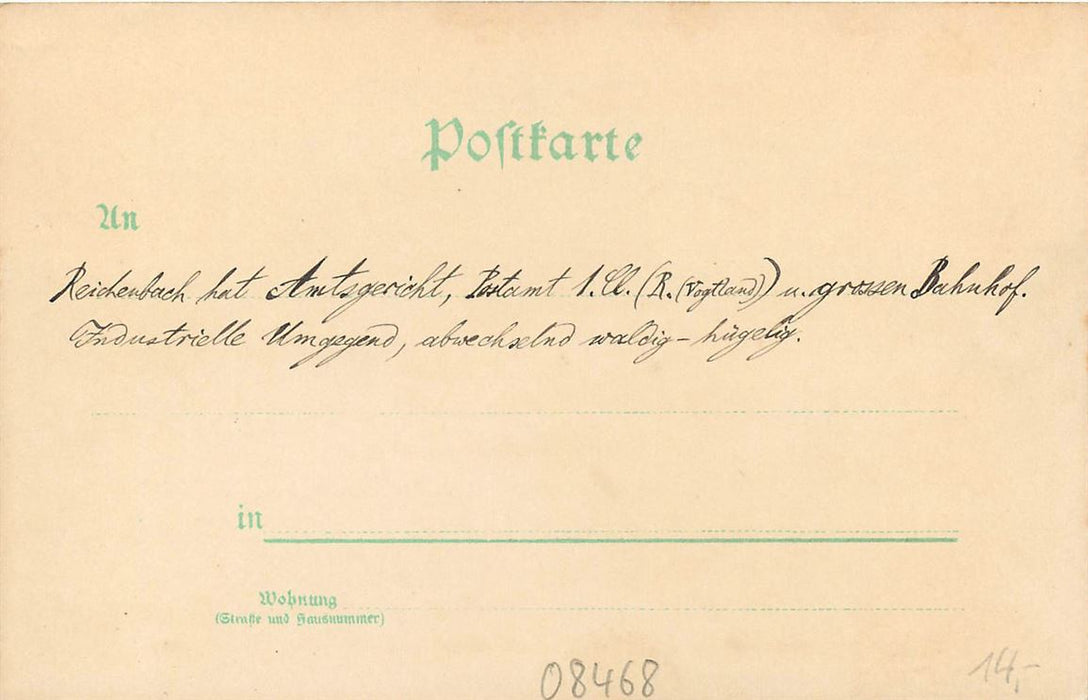 Postkarte
An
Reichenbach hat Amtsgericht, Postamt 1. Cl. (R. (Vogtland)) u. grossen Bahnhof.
Industrielle Umgegend, abwechselnd waldig - hügelig.
in
Wohnung
(Straße und Hausnummer)
08468
14,-